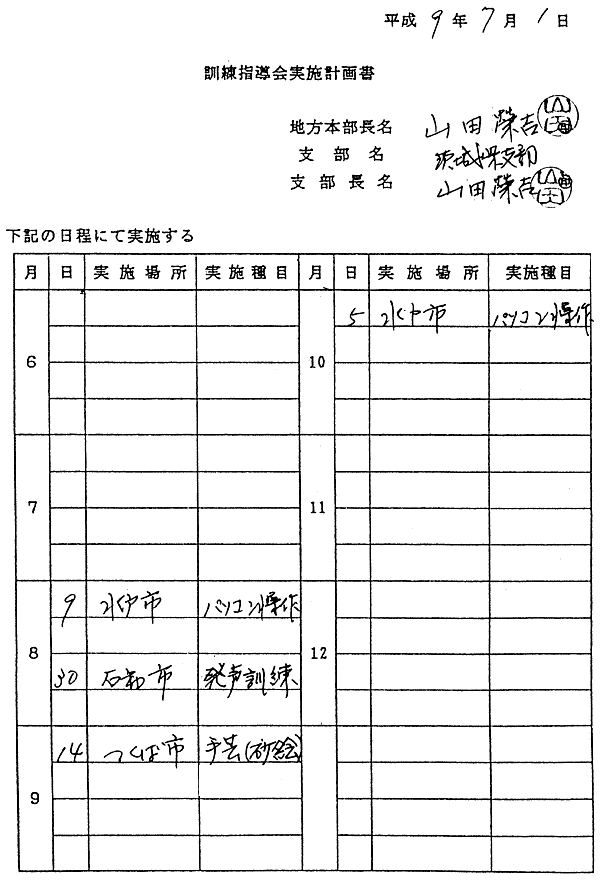 平成 9 年 7 月 1 日
訓練指導会実施計画書
地方本部長名 山田榮吉
支部名 茨城県支部
支部長名 山田榮吉
下記の日程にて実施する
月 日 実施場所 実施種目 月 日 実施場所 実施種目
5 水戸市 パソコン操作
6 10
7 11
9 水戸市 パソコン操作
8 12
30 石岡市 発声訓練
14 つくば市 手芸(砂絵)
9